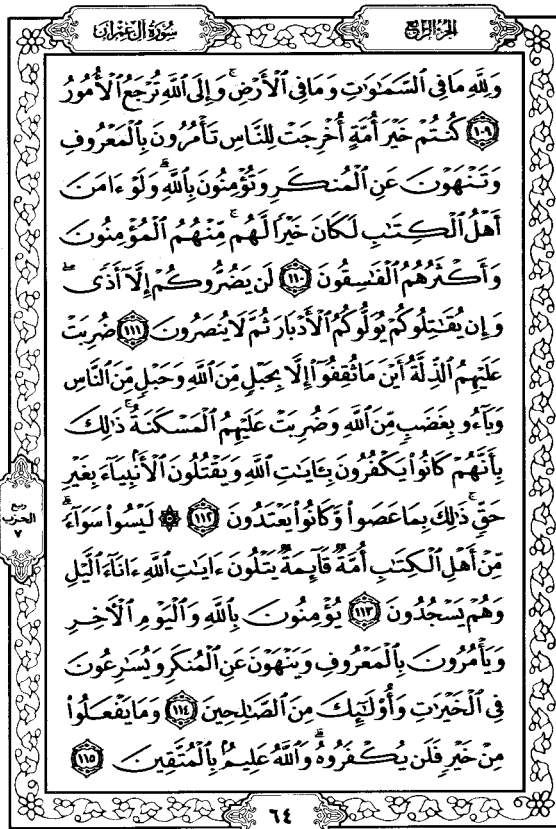 سورة آل عمران
الجزء الرابع
وَلِلَّهِ مَا فِي ٱلسَّمَٰوَٰتِ وَمَا فِي ٱلْأَرْضِ ۚ وَإِلَى ٱللَّهِ تُرْجَعُ ٱلْأُمُورُ
١٠٩ كُنتُمْ خَيْرَ أُمَّةٍ أُخْرِجَتْ لِلنَّاسِ تَأْمُرُونَ بِٱلْمَعْرُوفِ
وَتَنْهَوْنَ عَنِ ٱلْمُنكَرِ وَتُؤْمِنُونَ بِٱللَّهِ ۗ وَلَوْ ءَامَنَ
أَهْلُ ٱلْكِتَٰبِ لَكَانَ خَيْرًا لَّهُم ۚ مِّنْهُمُ ٱلْمُؤْمِنُونَ
وَأَكْثَرُهُمُ ٱلْفَٰسِقُونَ ١١٠ لَن يَضُرُّوكُمْ إِلَّآ أَذًى ۖ
وَإِن يُقَٰتِلُوكُمْ يُوَلُّوكُمُ ٱلْأَدْبَارَ ثُمَّ لَا يُنصَرُونَ ١١١ ضُرِبَتْ
عَلَيْهِمُ ٱلذِّلَّةُ أَيْنَ مَا ثُقِفُوٓا۟ إِلَّا بِحَبْلٍ مِّنَ ٱللَّهِ وَحَبْلٍ مِّنَ ٱلنَّاسِ
وَبَآءُو بِغَضَبٍ مِّنَ ٱللَّهِ وَضُرِبَتْ عَلَيْهِمُ ٱلْمَسْكَنَةُ ۚ ذَٰلِكَ
بِأَنَّهُمْ كَانُوا۟ يَكْفُرُونَ بِـَٔايَٰتِ ٱللَّهِ وَيَقْتُلُونَ ٱلْأَنۢبِيَآءَ بِغَيْرِ
حَقٍّ ۚ ذَٰلِكَ بِمَا عَصَوا۟ وَّكَانُوا۟ يَعْتَدُونَ ١١٢ ۞ لَيْسُوا۟ سَوَآءً ۗ
مِّنْ أَهْلِ ٱلْكِتَٰبِ أُمَّةٌ قَآئِمَةٌ يَتْلُونَ ءَايَٰتِ ٱللَّهِ ءَانَآءَ ٱلَّيْلِ
وَهُمْ يَسْجُدُونَ ١١٣ يُؤْمِنُونَ بِٱللَّهِ وَٱلْيَوْمِ ٱلْءَاخِرِ
وَيَأْمُرُونَ بِٱلْمَعْرُوفِ وَيَنْهَوْنَ عَنِ ٱلْمُنكَرِ وَيُسَٰرِعُونَ
فِي ٱلْخَيْرَٰتِ وَأُو۟لَٰٓئِكَ مِنَ ٱلصَّٰلِحِينَ ١١٤ وَمَا يَفْعَلُوا۟
مِنْ خَيْرٍ فَلَن يُكْفَرُوهُ ۗ وَٱللَّهُ عَلِيمٌۢ بِٱلْمُتَّقِينَ ١١٥
ربع
الحزب
٧
٦٤